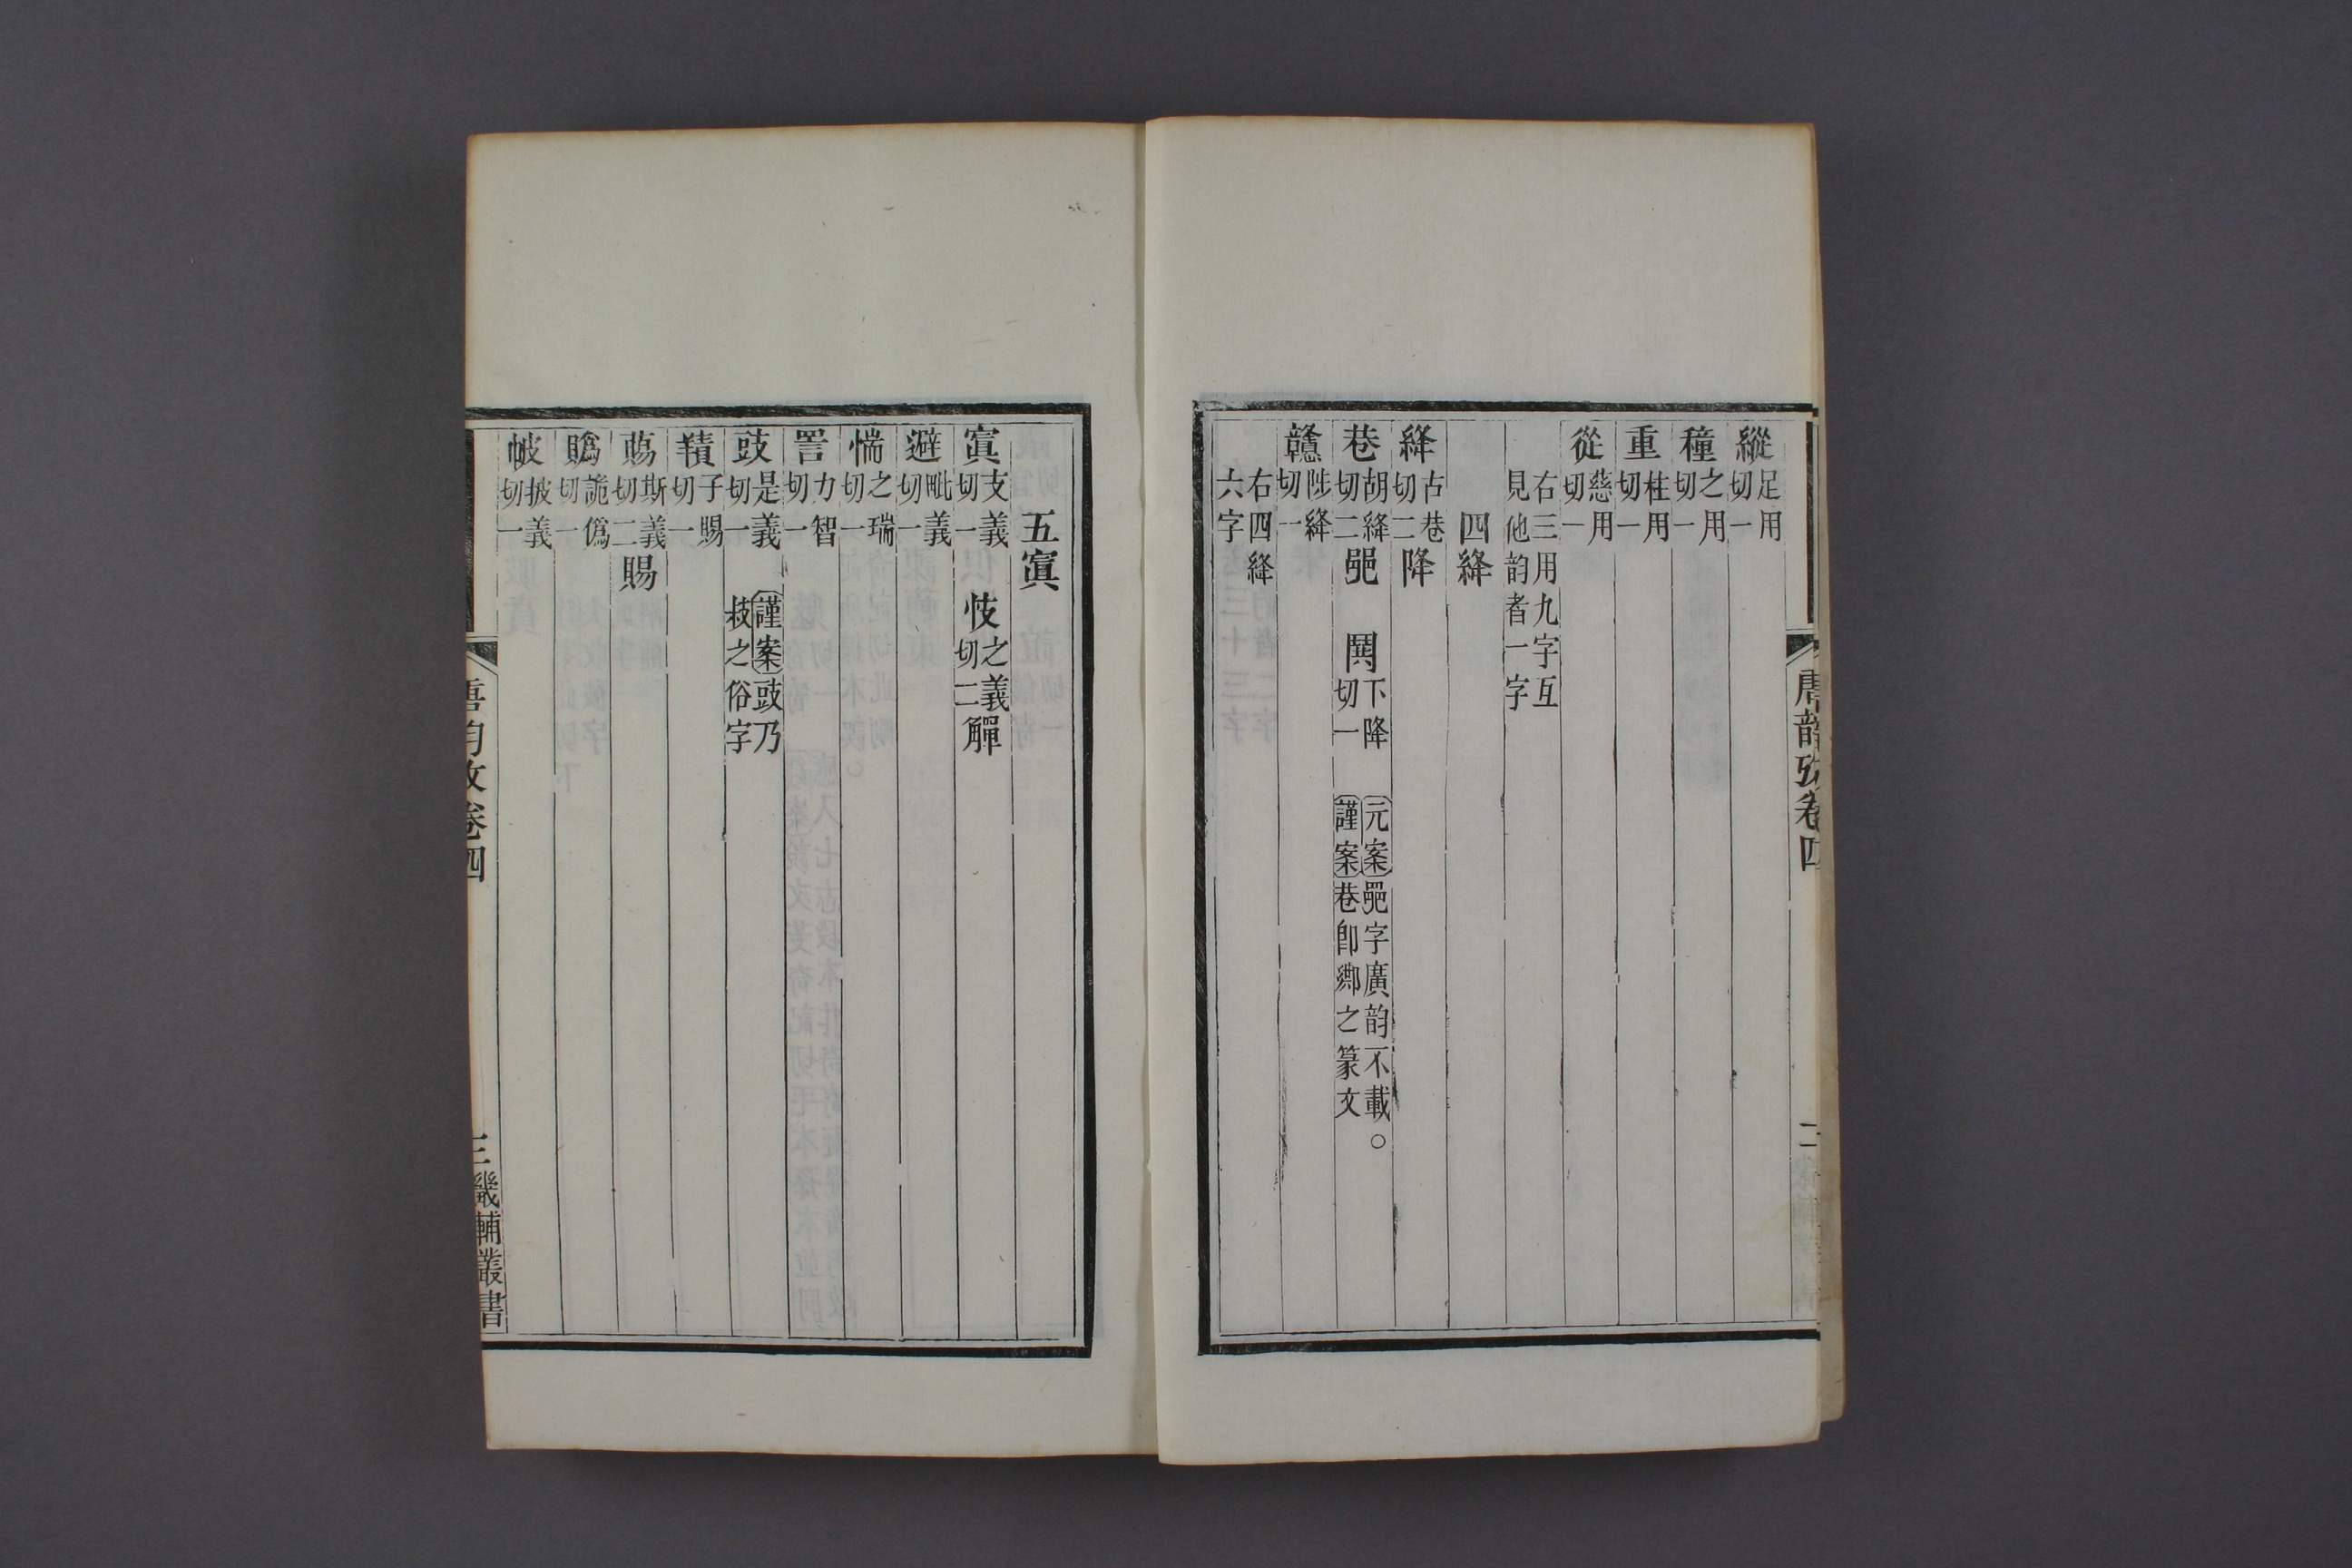 縱足用切一
穜之用切一
重柱用切一
從慈用切一
右三用九字互見他韵者一字
四絳
絳古巷切二降
巷胡絳切二𨞠 鬨下降切一 元案𨞠字廣韵不載○謹案巷卽𨞠之篆文
戇陟絳切一
右四絳六字
唐韵攷卷四
二
五寘
寘支義切一 忮之義切二觶
避毗義切一
惴之瑞切一
詈力智切一
豉是義切一 謹案豉乃𢻃之俗字
羵子賜切一
賜斯義切二賜
䞈詭僞切一
帔披義切一
唐韵攷卷四
三
畿輔叢書